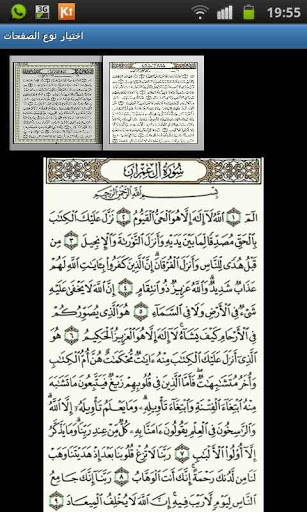 3G
KT
19:55
اختيار نوع الصفحات
سُورَةُ آلِ عِمْرَانَ
بِسْمِ اللَّهِ الرَّحْمَٰنِ الرَّحِيمِ
الٓمٓ ١ اللَّهُ لَا إِلَٰهَ إِلَّا هُوَ الْحَيُّ الْقَيُّومُ ٢ نَزَّلَ عَلَيْكَ الْكِتَٰبَ
بِالْحَقِّ مُصَدِّقًا لِّمَا بَيْنَ يَدَيْهِ وَأَنزَلَ التَّوْرَىٰةَ وَالْإِنجِيلَ ٣ مِن
قَبْلُ هُدًى لِّلنَّاسِ وَأَنزَلَ الْفُرْقَانَ إِنَّ الَّذِينَ كَفَرُوا بِـَٔايَٰتِ اللَّهِ لَهُمْ
عَذَابٌ شَدِيدٌ وَاللَّهُ عَزِيزٌ ذُو انتِقَامٍ ٤ إِنَّ اللَّهَ لَا يَخْفَىٰ عَلَيْهِ
شَىْءٌ فِى الْأَرْضِ وَلَا فِى السَّمَآءِ ٥ هُوَ الَّذِى يُصَوِّرُكُمْ
فِى الْأَرْحَامِ كَيْفَ يَشَآءُ لَا إِلَٰهَ إِلَّا هُوَ الْعَزِيزُ الْحَكِيمُ ٦ هُوَ
الَّذِى أَنزَلَ عَلَيْكَ الْكِتَٰبَ مِنْهُ ءَايَٰتٌ مُّحْكَمَٰتٌ هُنَّ أُمُّ الْكِتَٰبِ
وَأُخَرُ مُتَشَٰبِهَٰتٌ فَأَمَّا الَّذِينَ فِى قُلُوبِهِمْ زَيْغٌ فَيَتَّبِعُونَ مَا تَشَٰبَهَ
مِنْهُ ابْتِغَآءَ الْفِتْنَةِ وَابْتِغَآءَ تَأْوِيلِهِ وَمَا يَعْلَمُ تَأْوِيلَهُ إِلَّا اللَّهُ
وَالرَّٰسِخُونَ فِى الْعِلْمِ يَقُولُونَ ءَامَنَّا بِهِ كُلٌّ مِّنْ عِندِ رَبِّنَا وَمَا يَذَّكَّرُ
إِلَّا أُولُوا الْأَلْبَٰبِ ٧ رَبَّنَا لَا تُزِغْ قُلُوبَنَا بَعْدَ إِذْ هَدَيْتَنَا وَهَبْ
لَنَا مِن لَّدُنكَ رَحْمَةً إِنَّكَ أَنتَ الْوَهَّابُ ٨ رَبَّنَا إِنَّكَ جَامِعُ
النَّاسِ لِيَوْمٍ لَّا رَيْبَ فِيهِ إِنَّ اللَّهَ لَا يُخْلِفُ الْمِيعَادَ ٩